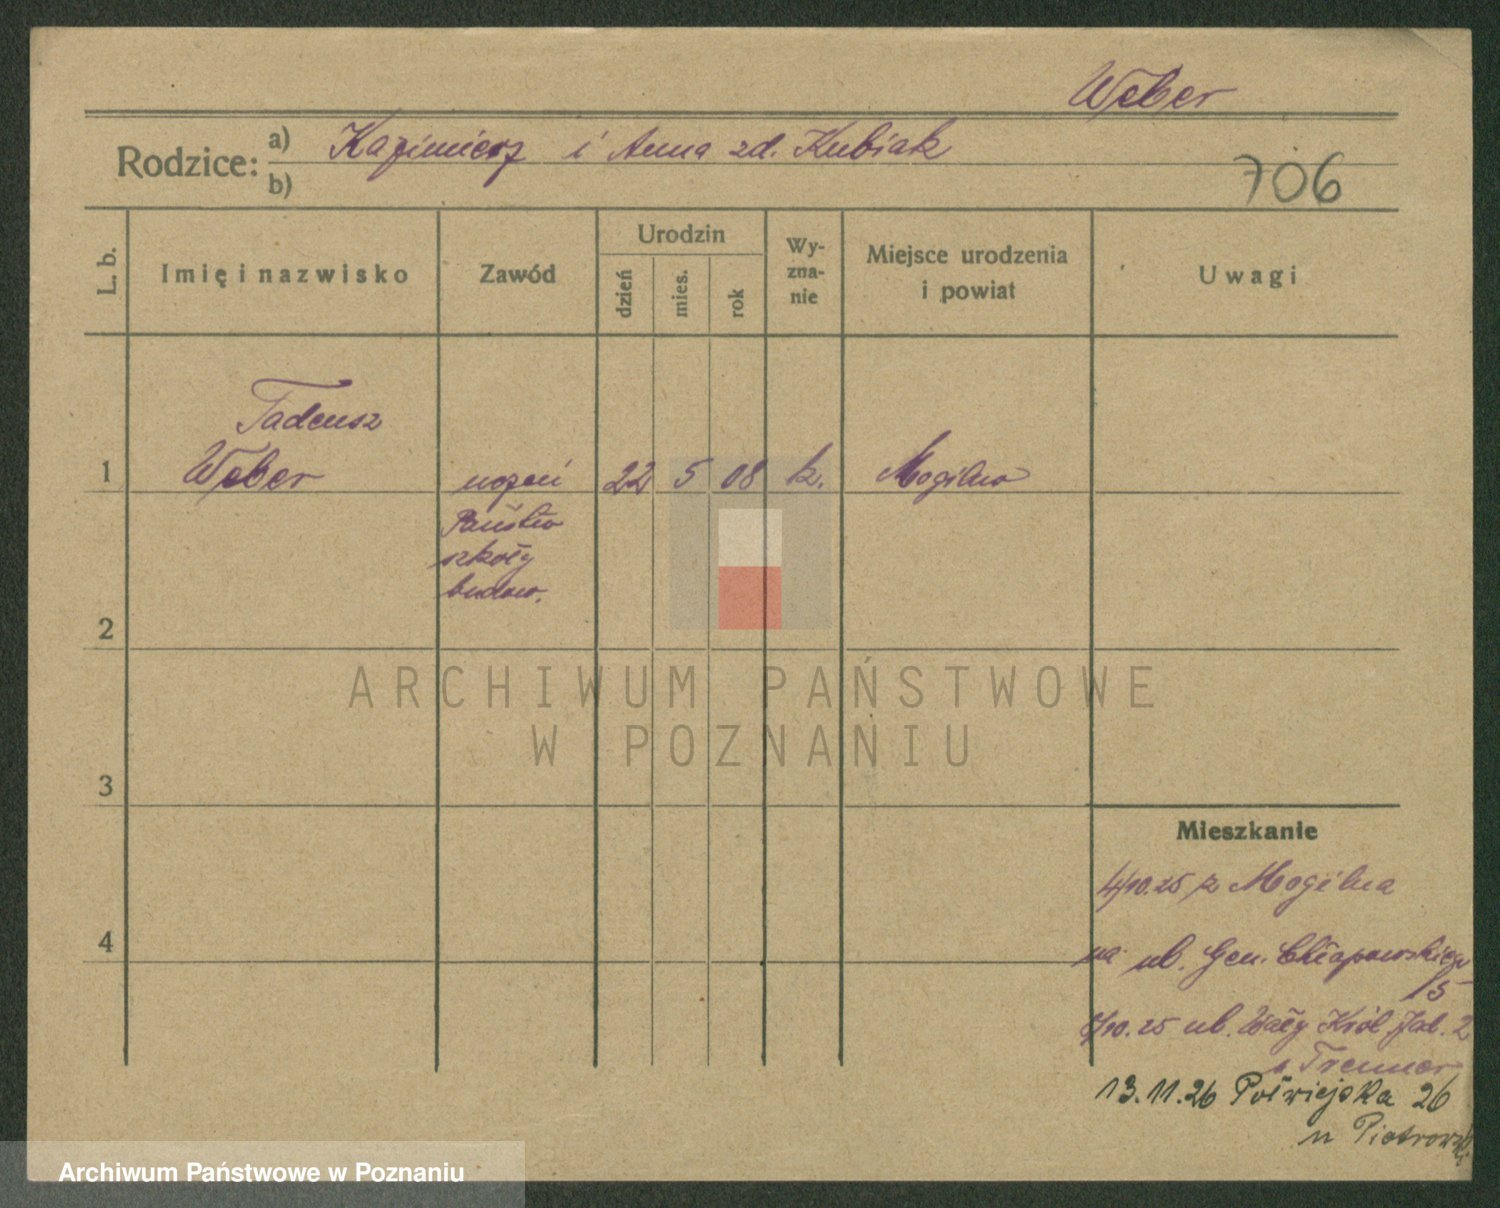 Weber
Rodzice: a) Kazimierz i Anna zd. Kubiak
b)
706
L. b.
Imię i nazwisko
Zawód
Urodzin
dzień
mies.
rok
Wy-
zna-
nie
Miejsce urodzenia
i powiat
Uwagi
Tadeusz
1 Weber uczeń 22 5 08 k. Mogilno
Państw
szkoły
budow.
2
3
4
Mieszkanie
4/10.25 z Mogilna
na ul. Gen. Chłapowskiego
15
10.25 ul. Wały Król. Jad. 2
Tremmer
13.11.26 Półwiejska 26
u Piotrowski
ARCHIWUM PAŃSTWOWE
W POZNANIU
Archiwum Państwowe w Poznaniu